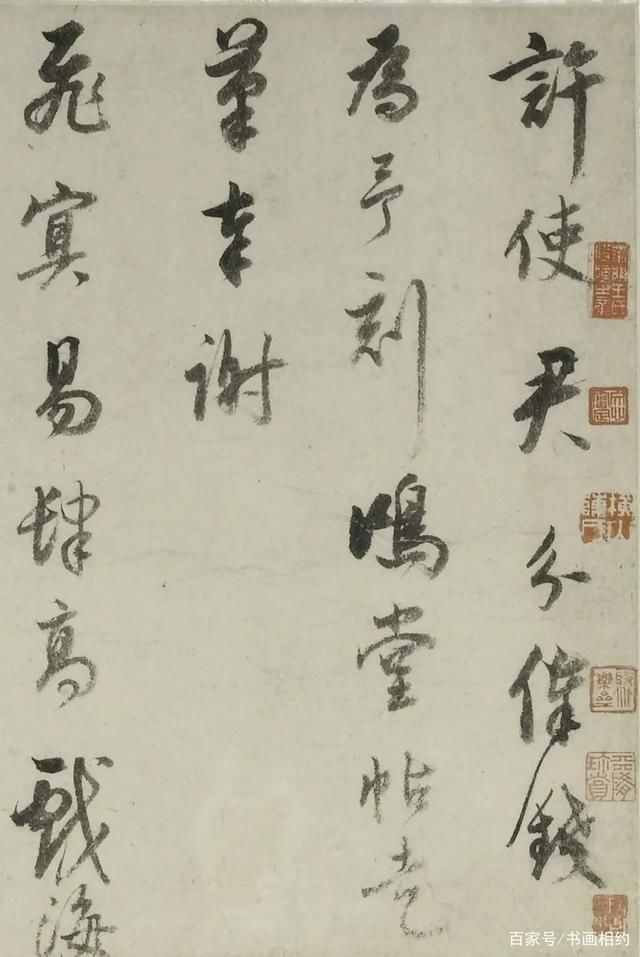 許使君分俸錢
為予刻鳴堂帖走
筆奉謝
飛冥易肆高戲海
百家号/书画相约